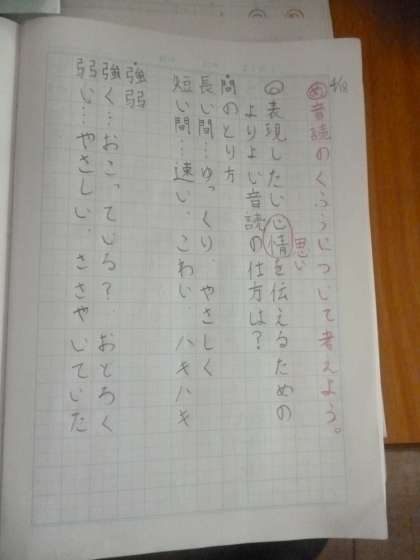 4/18
め 音読のくふうについて考えよう。
思い
◎表現したい心情を伝えるための
よりよい音読の仕方は?
・間のとり方
長い間…ゆっくり、やさしく
短い間…速い、こわい、ハキハキ
・強弱
強く…おこっている?、おどろく
弱い…やさしい、ささやいていた